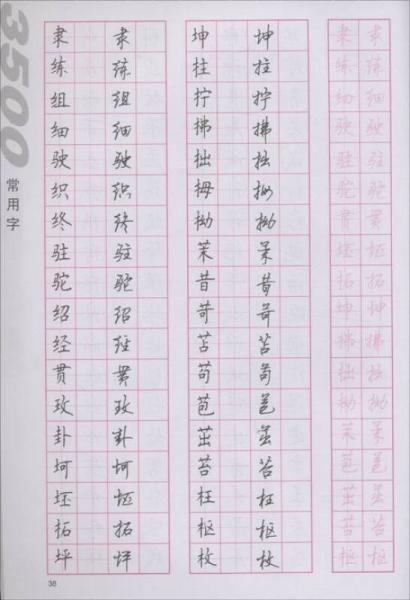 3500
常用字
隶练组细驶织终驻驼绍经贯玫卦坷坯拓坪
隶练组细驶织终驻驼绍经贯玫卦坷坯拓坪
坤拄拧拂拙拇拗茉昔苛苫苟苞茁苔枉枢枚
坤拄拧拂拙拇拗茉昔苛苫苟苞茁苔枉枢枚
隶练细驶驻驼贯坯拓坤拂拙拗茉苞茁苔枢
隶练细驶驻驼贯坯拓坤拂拙拗茉苞茁苔枢
38